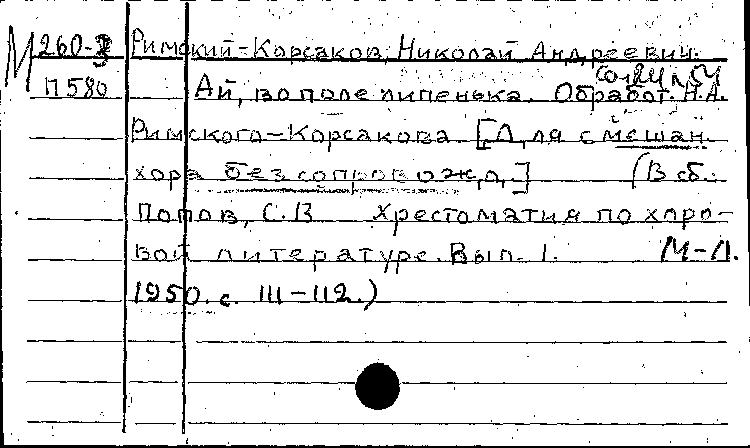 М 260-3 Римский-Корсаков, Николай Андреевич.
П 580 Ай, во поле липенька. Обработ. Н.А.
Римского-Корсакова. [Для смешан.
хора без сопровожд.] (В сб.:
Попов, С.В Хрестоматия по хоро-
вой литературе. Вып. 1. М-Л.
1950. с. 111-112.)